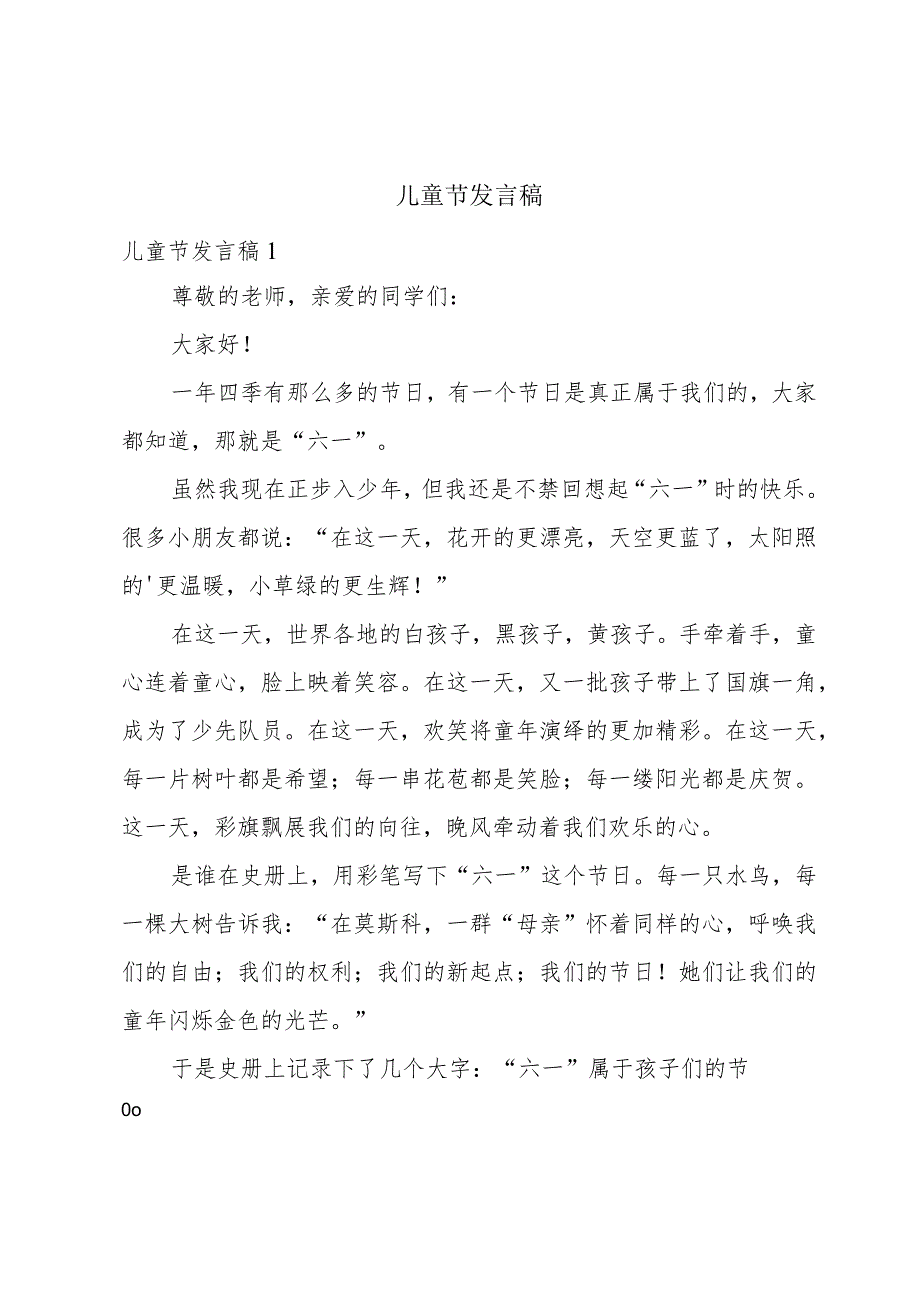 儿童节发言稿
儿童节发言稿1
尊敬的老师，亲爱的同学们：
大家好！
一年四季有那么多的节日，有一个节日是真正属于我们的，大家
都知道，那就是“六一”。
虽然我现在正步入少年，但我还是不禁回想起“六一”时的快乐。
很多小朋友都说：“在这一天，花开的更漂亮，天空更蓝了，太阳照
的'更温暖，小草绿的更生辉！”
在这一天，世界各地的白孩子，黑孩子，黄孩子。手牵着手，童
心连着童心，脸上映着笑容。在这一天，又一批孩子带上了国旗一角，
成为了少先队员。在这一天，欢笑将童年演绎的更加精彩。在这一天，
每一片树叶都是希望；每一串花苞都是笑脸；每一缕阳光都是庆贺。
这一天，彩旗飘展我们的向往，晚风牵动着我们欢乐的心。
是谁在史册上，用彩笔写下“六一”这个节日。每一只水鸟，每
一棵大树告诉我：“在莫斯科，一群“母亲”怀着同样的心，呼唤我
们的自由；我们的权利；我们的新起点；我们的节日！她们让我们的
童年闪烁金色的光芒。”
于是史册上记录下了几个大字：“六一”属于孩子们的节
0o